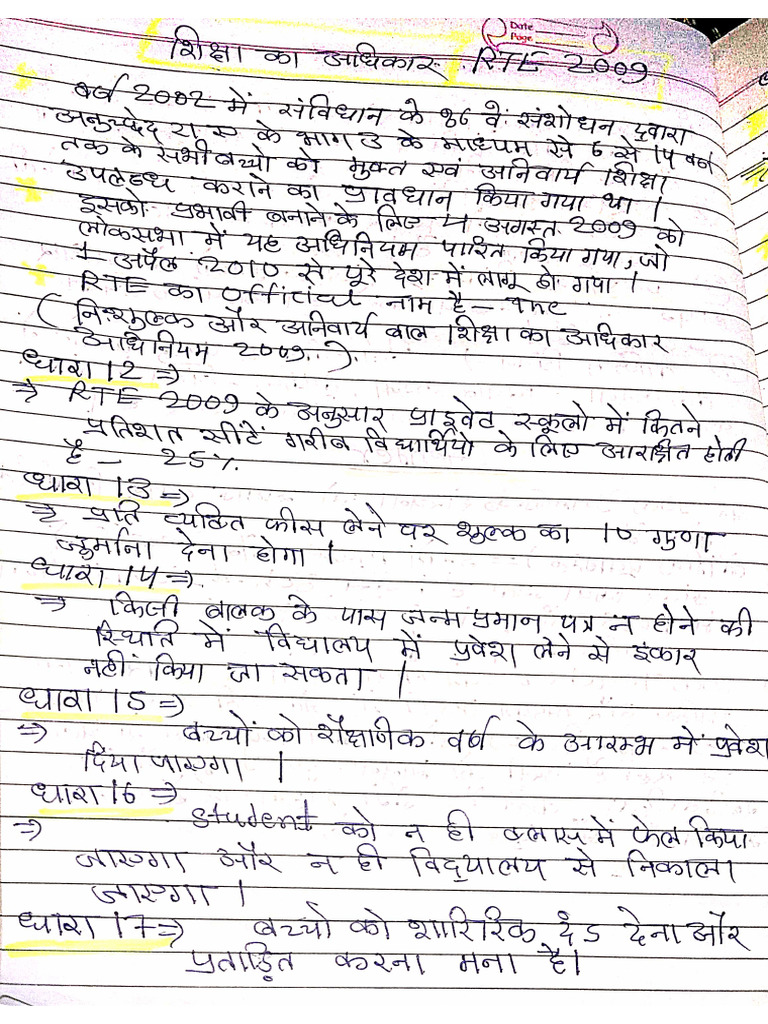 Date
Page
शिक्षा का अधिकार RTE 2009
वर्ष 2002 में संविधान के 86 वें संशोधन द्वारा
अनुच्छेद 21 ए के भाग 3 के माध्यम से 6 से 14 वर्ष
तक के सभी बच्चो को मुक्त एवं अनिवार्य शिक्षा
उपलब्ध कराने का प्रावधान किया गया था।
इसको प्रभावी बनाने के लिए 4 अगस्त 2009 को
लोकसभा में यह अधिनियम पारित किया गया, जो
1 अप्रैल 2010 से पूरे देश में लागू हो गया।
RTE का official नाम है – The
(निःशुल्क और अनिवार्य बाल शिक्षा का अधिकार
अधिनियम 2009.)
धारा 12 ⇒
⇒ RTE 2009 के अनुसार प्राइवेट स्कूलो में कितने
प्रतिशत सीटें गरीब विद्यार्थियो के लिए आरक्षित होती
है – 25%
धारा 13 ⇒
⇒ प्रति व्यक्ति फीस लेने पर शुल्क का 10 गुणा
जुर्माना देना होगा।
धारा 14 ⇒
⇒ किसी बालक के पास जन्म प्रमान पत्र न होने की
स्थिति में विद्यालय में प्रवेश लेने से इंकार
नहीं किया जा सकता।
धारा 15 ⇒
⇒ बच्चों को शैक्षणिक वर्ष के आरम्भ में प्रवेश
दिया जाएगा।
धारा 16 ⇒
⇒ student को न ही क्लास में फेल किया
जाएगा और न ही विद्यालय से निकाला
जाएगा।
धारा 17 ⇒ बच्चो को शारिरिक दंड देना और
प्रताड़ित करना मना है।